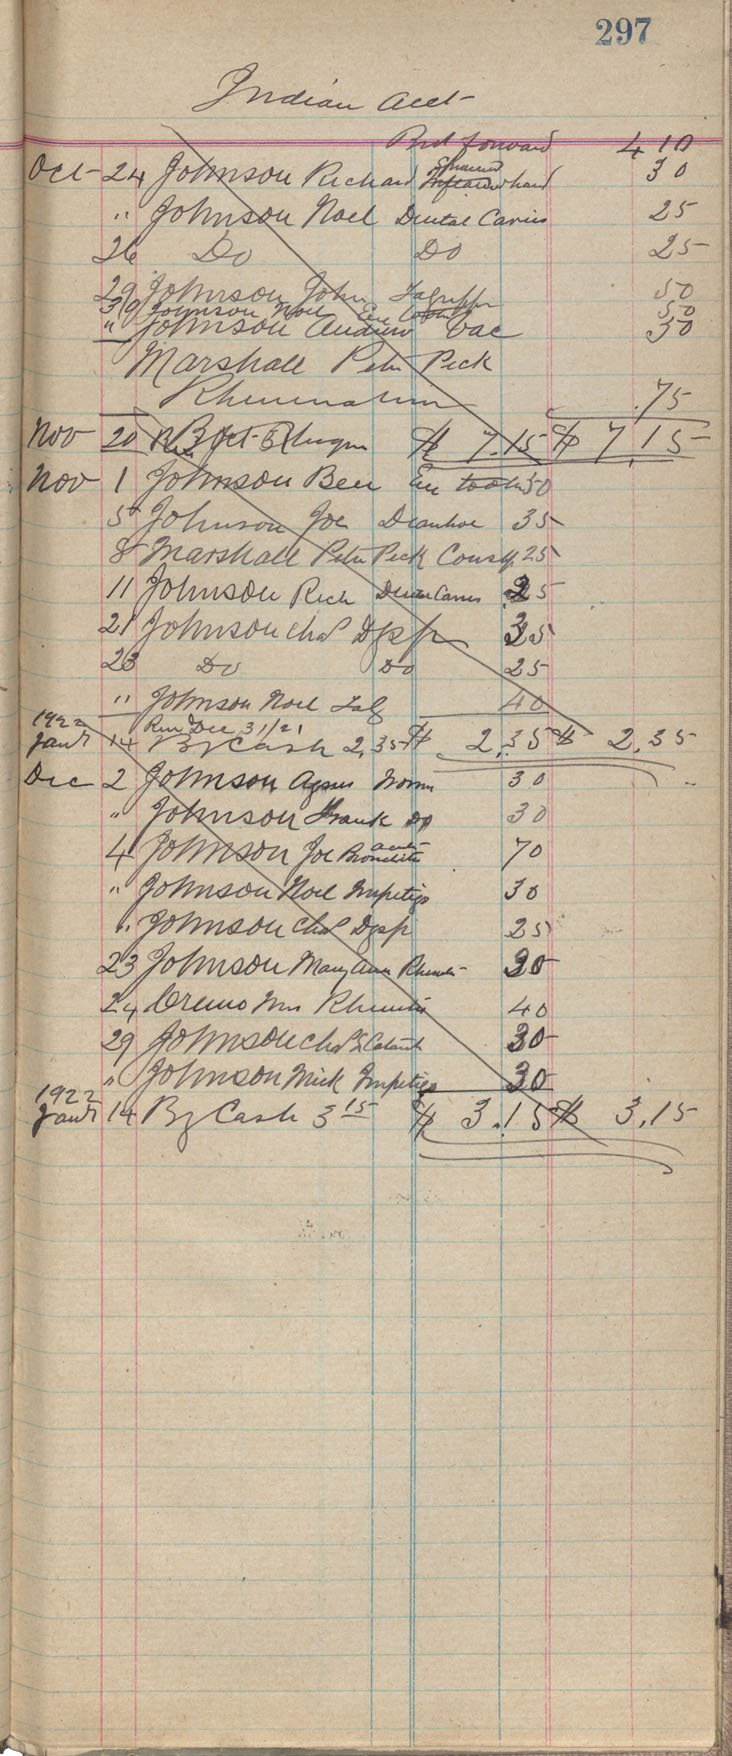 297
Indian Acct
Brt forward 4 10
Oct 24 Johnson Richard Sprained hand 30
" Johnson Noel Dental Caries 25
26 Do Do 25
29 Johnson John Lagrippe 50
Johnson Noel 50
" Johnson Andrew Vac 30
Marshall Peter Peck
Rheumatism .75
Nov 20 $ 7.15 $ 7.15
Nov 1 Johnson Ben Ext tooth 50
5 Johnson Joe 35
8 Marshall Peter Peck Constp 25
11 Johnson Rich Dental Caries 25
21 Johnson Chas Dysp 35
23 Do Do 25
" Johnson Noel 40
Dec 31/21
1922
Jany 14 By Cash 2.35 $ 2.35 $ 2.35
Dec 2 Johnson Agnes Worm 30
" Johnson Frank Do 30
4 Johnson Joe acute Bronchitis 70
" Johnson Noel Impetigo 30
" Johnson Chas Dysp 25
23 Johnson Mary Ann 30
24 Mrs 40
29 Johnson Chas 30
" Johnson Mick Impetigo 30
1922
Jany 14 By Cash 3 15 $ 3.15 $ 3.15